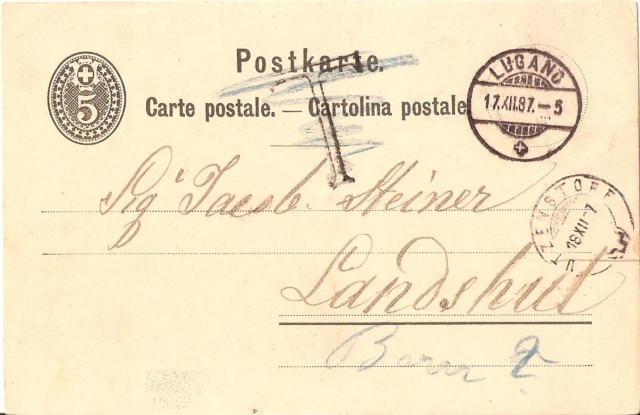 Postkarte.
5
Carte postale. — Cartolina postale
T
LUGANO
17.XII.87.-5
Sigr Jacob Steiner
UTZENSTORF
Landshut
Bern